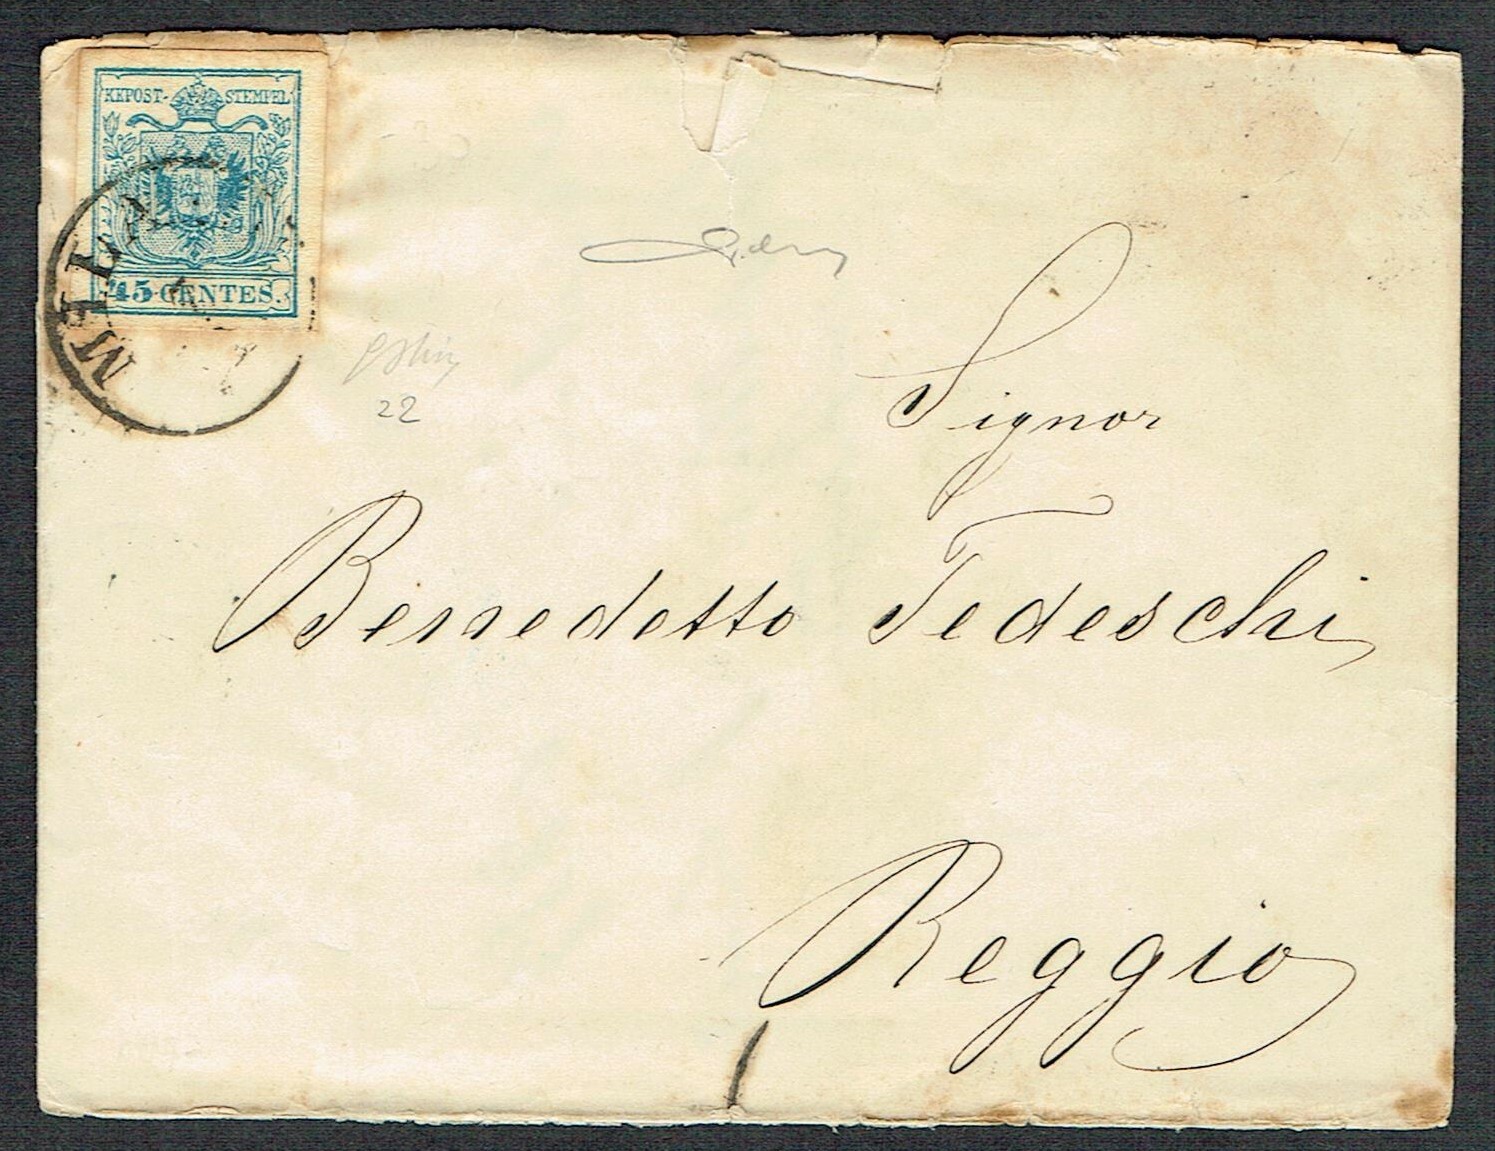 KKPOST-STEMPEL
45 CENTES.
MILA
22
Signor
Benedetto Tedeschi
Reggio